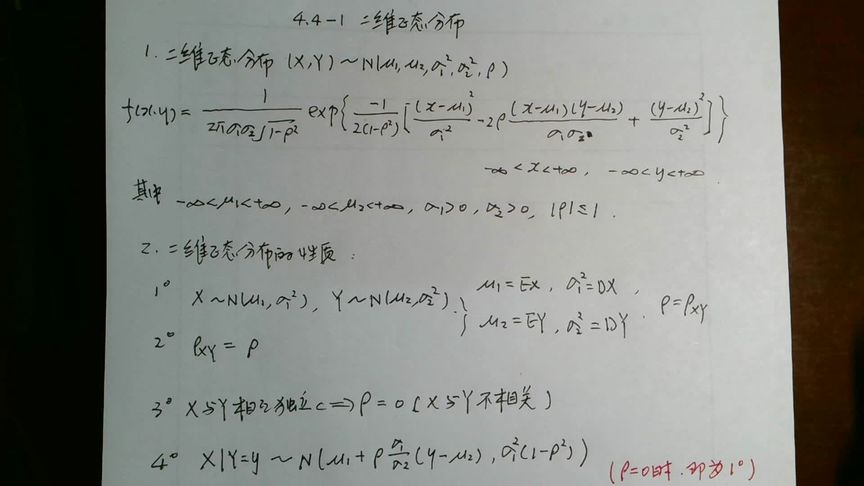 4.4-1 二维正态分布
1. 二维正态分布 (X,Y)~N(μ₁,μ₂,σ₁²,σ₂²,ρ)
f(x,y)= 1/(2πσ₁σ₂√(1-ρ²)) exp{ -1/(2(1-ρ²)) [ (x-μ₁)²/σ₁² -2ρ (x-μ₁)(y-μ₂)/(σ₁σ₂) + (y-μ₂)²/σ₂² ] }
-∞<x<+∞, -∞<y<+∞.
其中 -∞<μ₁<+∞, -∞<μ₂<+∞, σ₁>0, σ₂>0, |ρ|≤1.
2. 二维正态分布的性质:
1° X~N(μ₁,σ₁²), Y~N(μ₂,σ₂²). } μ₁=EX, σ₁²=DX, μ₂=EY, σ₂²=DY. ρ=ρXY
2° ρXY = ρ
3° X与Y相互独立<=>ρ=0 (X与Y不相关)
4° X|Y=y ~ N(μ₁+ρ σ₁/σ₂ (y-μ₂), σ₁²(1-ρ²))
(ρ=0时.即为1°)